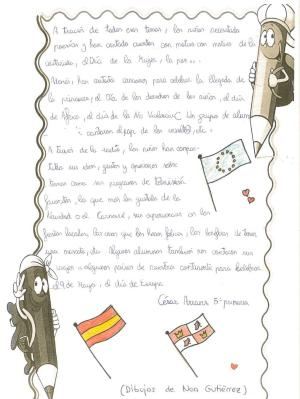 A través de todos esos temas, los niños recitando
poesías y han contado cuentos con motivo con motivo de la
castañada, el Día de la Mujer, la paz...
han cantado canciones para celebrar la llegada de
la primavera, el Día de los derechos de los niños, el día
de África, el día de la No Violencia. Un grupo de alumnos
cantaron el rap de los
A través de la radio, los niños han compar-
tido sus ideas, gustos y opiniones sobre
temas como sus programas de televisión
favoritos, lo que más les gustaba de la
Navidad o el Carnaval, sus experiencias en las
fiestas locales, las cosas que les hacen felices, los beneficios de tener
una mascota, etc. Algunos alumnos también nos contaron sus
viajes a algunos países de nuestro continente para celebrar
el 9 de Mayo, el día de Europa.
César 5º primaria
(Dibujos de Noa Gutiérrez)